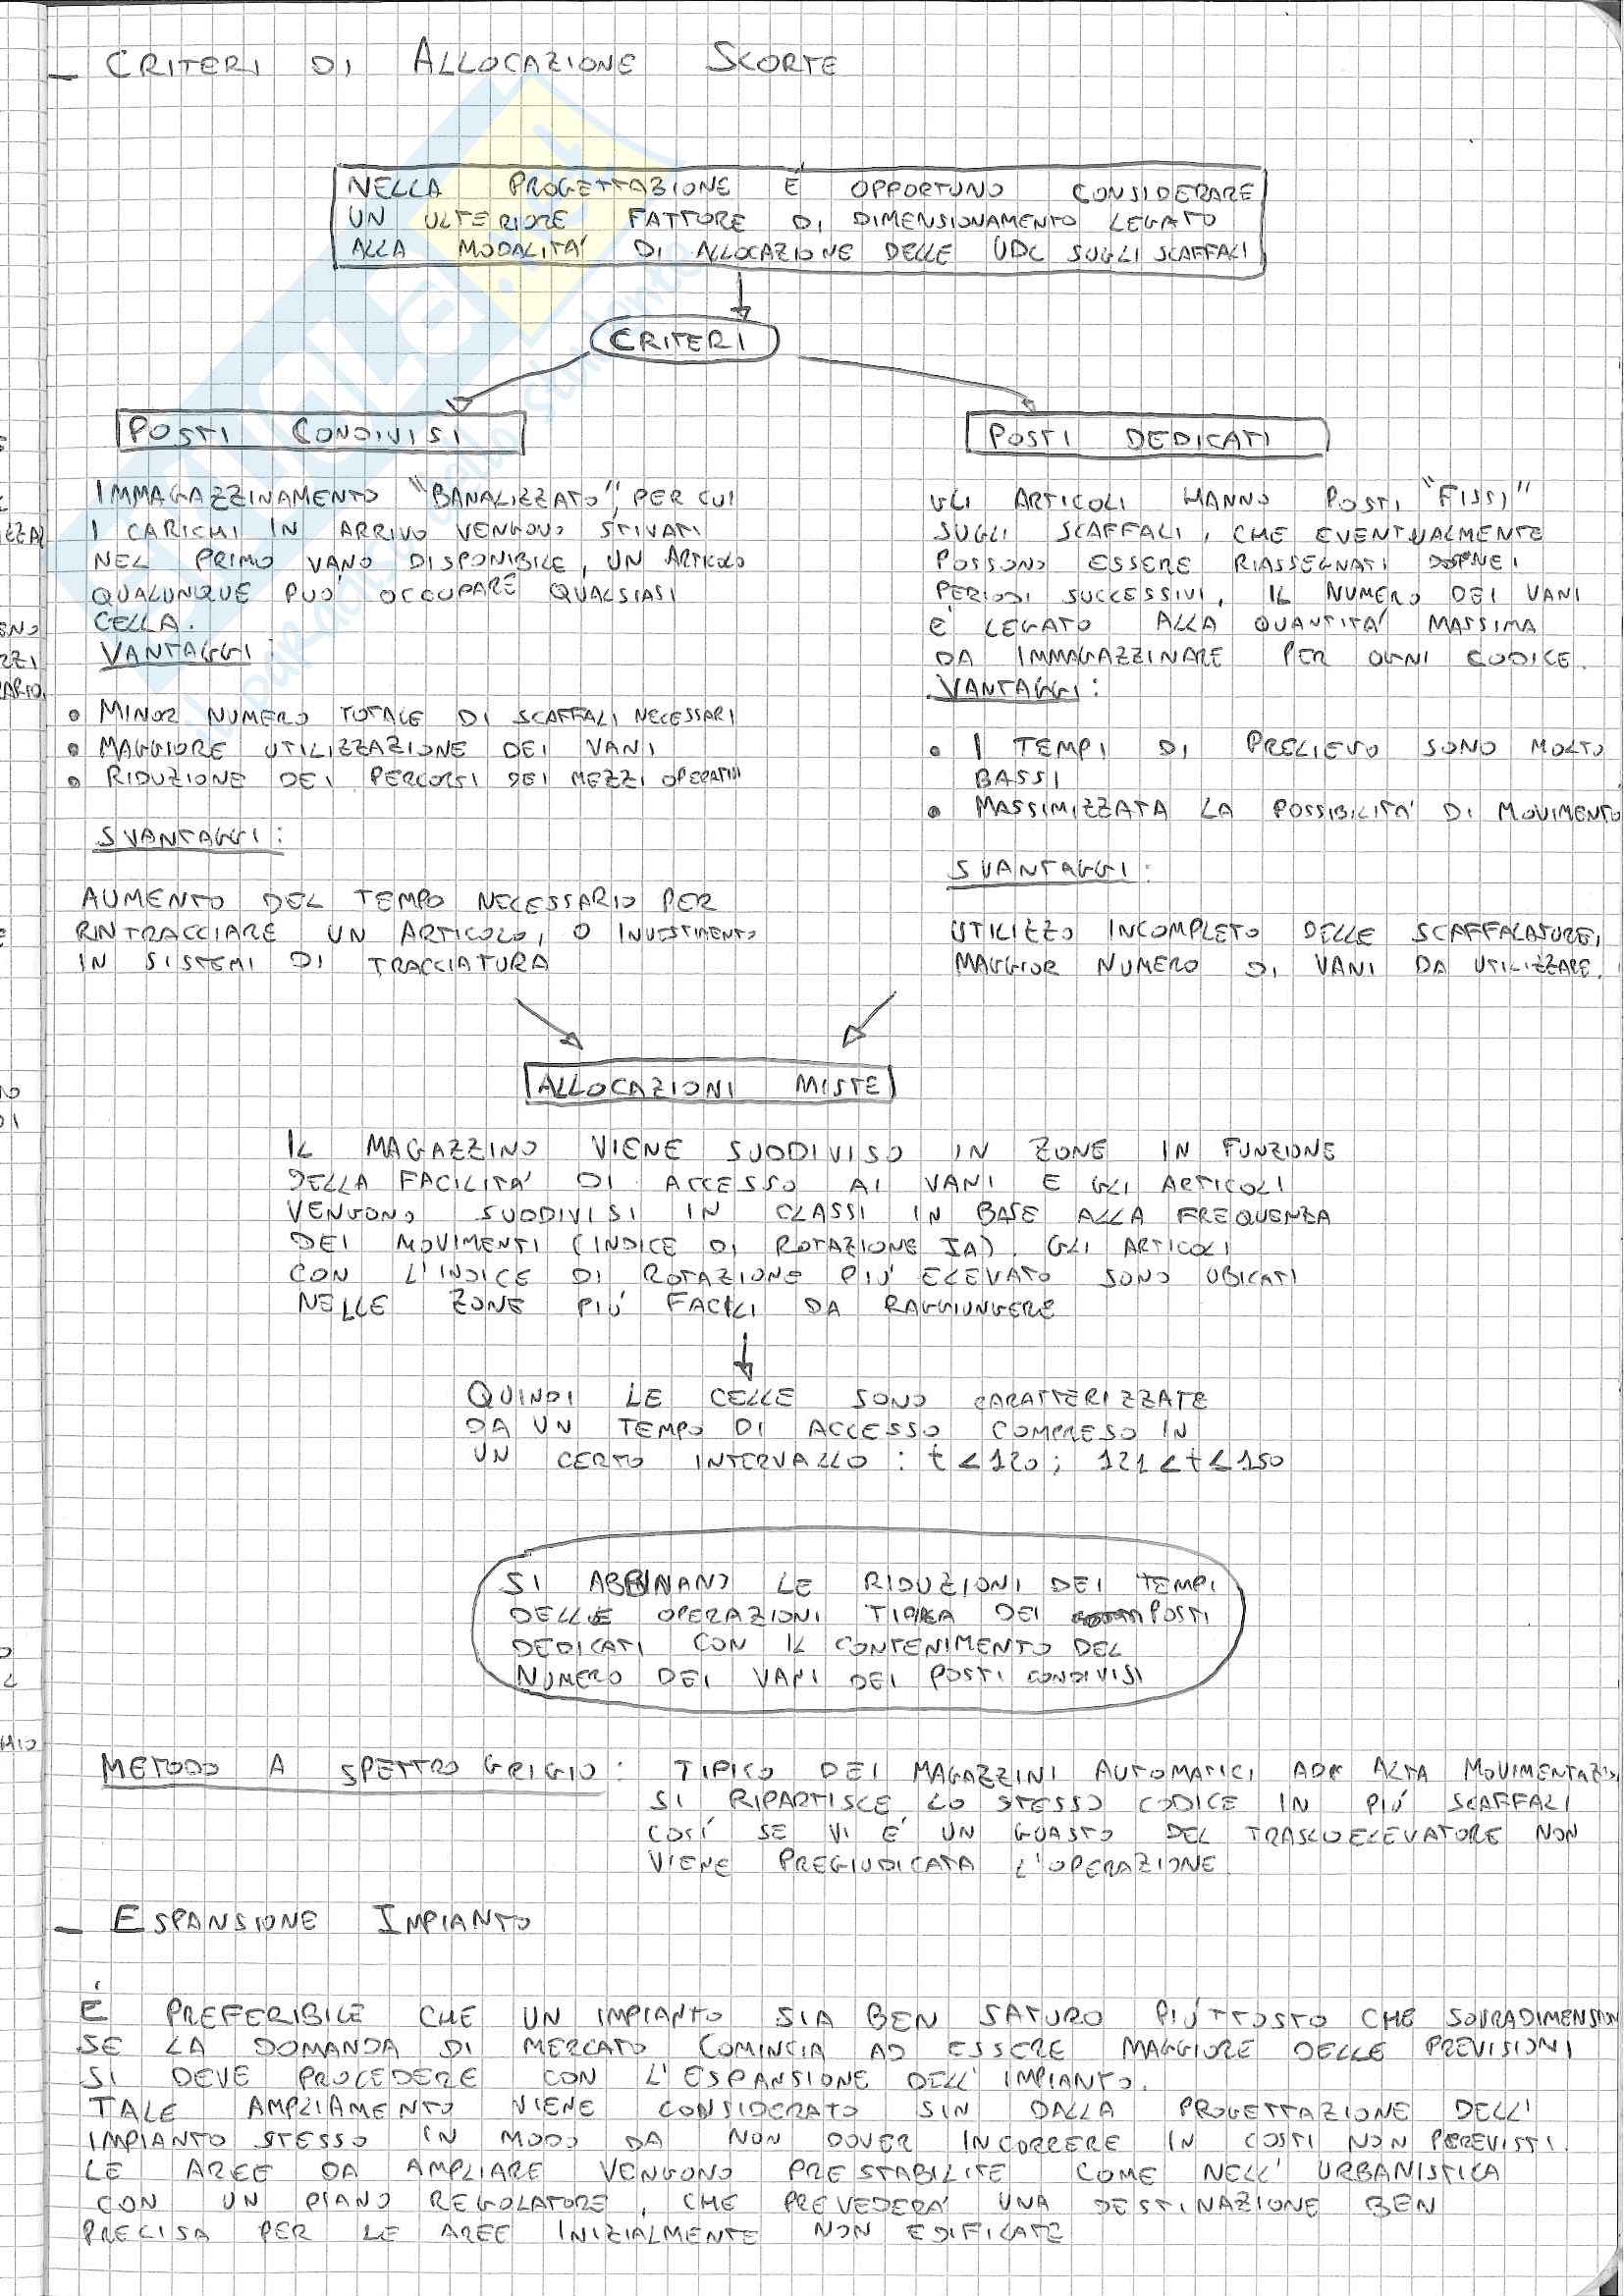 – CRITERI DI ALLOCAZIONE SCORTE
NELLA PROGETTAZIONE È OPPORTUNO CONSIDERARE
UN ULTERIORE FATTORE DI DIMENSIONAMENTO LEGATO
ALLA MODALITA' DI ALLOCAZIONE DELLE UDC SUGLI SCAFFALI
CRITERI
POSTI CONDIVISI
IMMAGAZZINAMENTO "BANALIZZATO", PER CUI
I CARICHI IN ARRIVO VENGONO STIVATI
NEL PRIMO VANO DISPONIBILE, UN ARTICOLO
QUALUNQUE PUO' OCCUPARE QUALSIASI
CELLA.
VANTAGGI:
• MINOR NUMERO TOTALE DI SCAFFALI NECESSARI
• MAGGIORE UTILIZZAZIONE DEI VANI
• RIDUZIONE DEI PERCORSI DEI MEZZI OPERATIVI
SVANTAGGI:
AUMENTO DEL TEMPO NECESSARIO PER
RINTRACCIARE UN ARTICOLO, O INVESTIMENTO
IN SISTEMI DI TRACCIATURA
POSTI DEDICATI
GLI ARTICOLI HANNO POSTI "FISSI"
SUGLI SCAFFALI, CHE EVENTUALMENTE
POSSONO ESSERE RIASSEGNATI NEI
PERIODI SUCCESSIVI, IL NUMERO DEI VANI
E' LEGATO ALLA QUANTITA' MASSIMA
DA IMMAGAZZINARE PER OGNI CODICE.
VANTAGGI:
• I TEMPI DI PRELIEVO SONO MOLTO
BASSI
• MASSIMIZZATA LA POSSIBILITA' DI MOVIMENTO
SVANTAGGI:
UTILIZZO INCOMPLETO DELLE SCAFFALATURE,
MAGGIOR NUMERO DI VANI DA UTILIZZARE.
ALLOCAZIONI MISTE
IL MAGAZZINO VIENE SUDDIVISO IN ZONE IN FUNZIONE
DELLA FACILITA' DI ACCESSO AI VANI E GLI ARTICOLI
VENGONO SUDDIVISI IN CLASSI IN BASE ALLA FREQUENZA
DEI MOVIMENTI (INDICE DI ROTAZIONE IA). GLI ARTICOLI
CON L'INDICE DI ROTAZIONE PIU' ELEVATO SONO UBICATI
NELLE ZONE PIU' FACILI DA RAGGIUNGERE
QUINDI LE CELLE SONO CARATTERIZZATE
DA UN TEMPO DI ACCESSO COMPRESO IN
UN CERTO INTERVALLO : t<120; 121<t<150
SI ABBINANO LE RIDUZIONI DEI TEMPI
DELLE OPERAZIONI TIPICA DEI POSTI
DEDICATI CON IL CONTENIMENTO DEL
NUMERO DEI VANI DEI POSTI CONDIVISI
METODO A SPETTRO GRIGIO: TIPICO DEI MAGAZZINI AUTOMATICI AD ALTA MOVIMENTAZI
SI RIPARTISCE LO STESSO CODICE IN PIU' SCAFFALI
COSI' SE VI E' UN GUASTO DEL TRASLOELEVATORE NON
VIENE PREGIUDICATA L'OPERAZIONE
– ESPANSIONE IMPIANTO
È PREFERIBILE CHE UN IMPIANTO SIA BEN SATURO PIUTTOSTO CHE SOVRADIMENSION
SE LA DOMANDA DI MERCATO COMINCIA AD ESSERE MAGGIORE DELLE PREVISIONI
SI DEVE PROCEDERE CON L'ESPANSIONE DELL'IMPIANTO.
TALE AMPLIAMENTO VIENE CONSIDERATO SIN DALLA PROGETTAZIONE DELL'
IMPIANTO STESSO IN MODO DA NON DOVER INCORRERE IN COSTI NON PEREVISTI.
LE AREE DA AMPLIARE VENGONO PRESTABILITE COME NELL'URBANISTICA
CON UN PIANO REGOLATORE, CHE PREVEDERA' UNA DESTINAZIONE BEN
PRECISA PER LE AREE INIZIALMENTE NON EDIFICATE